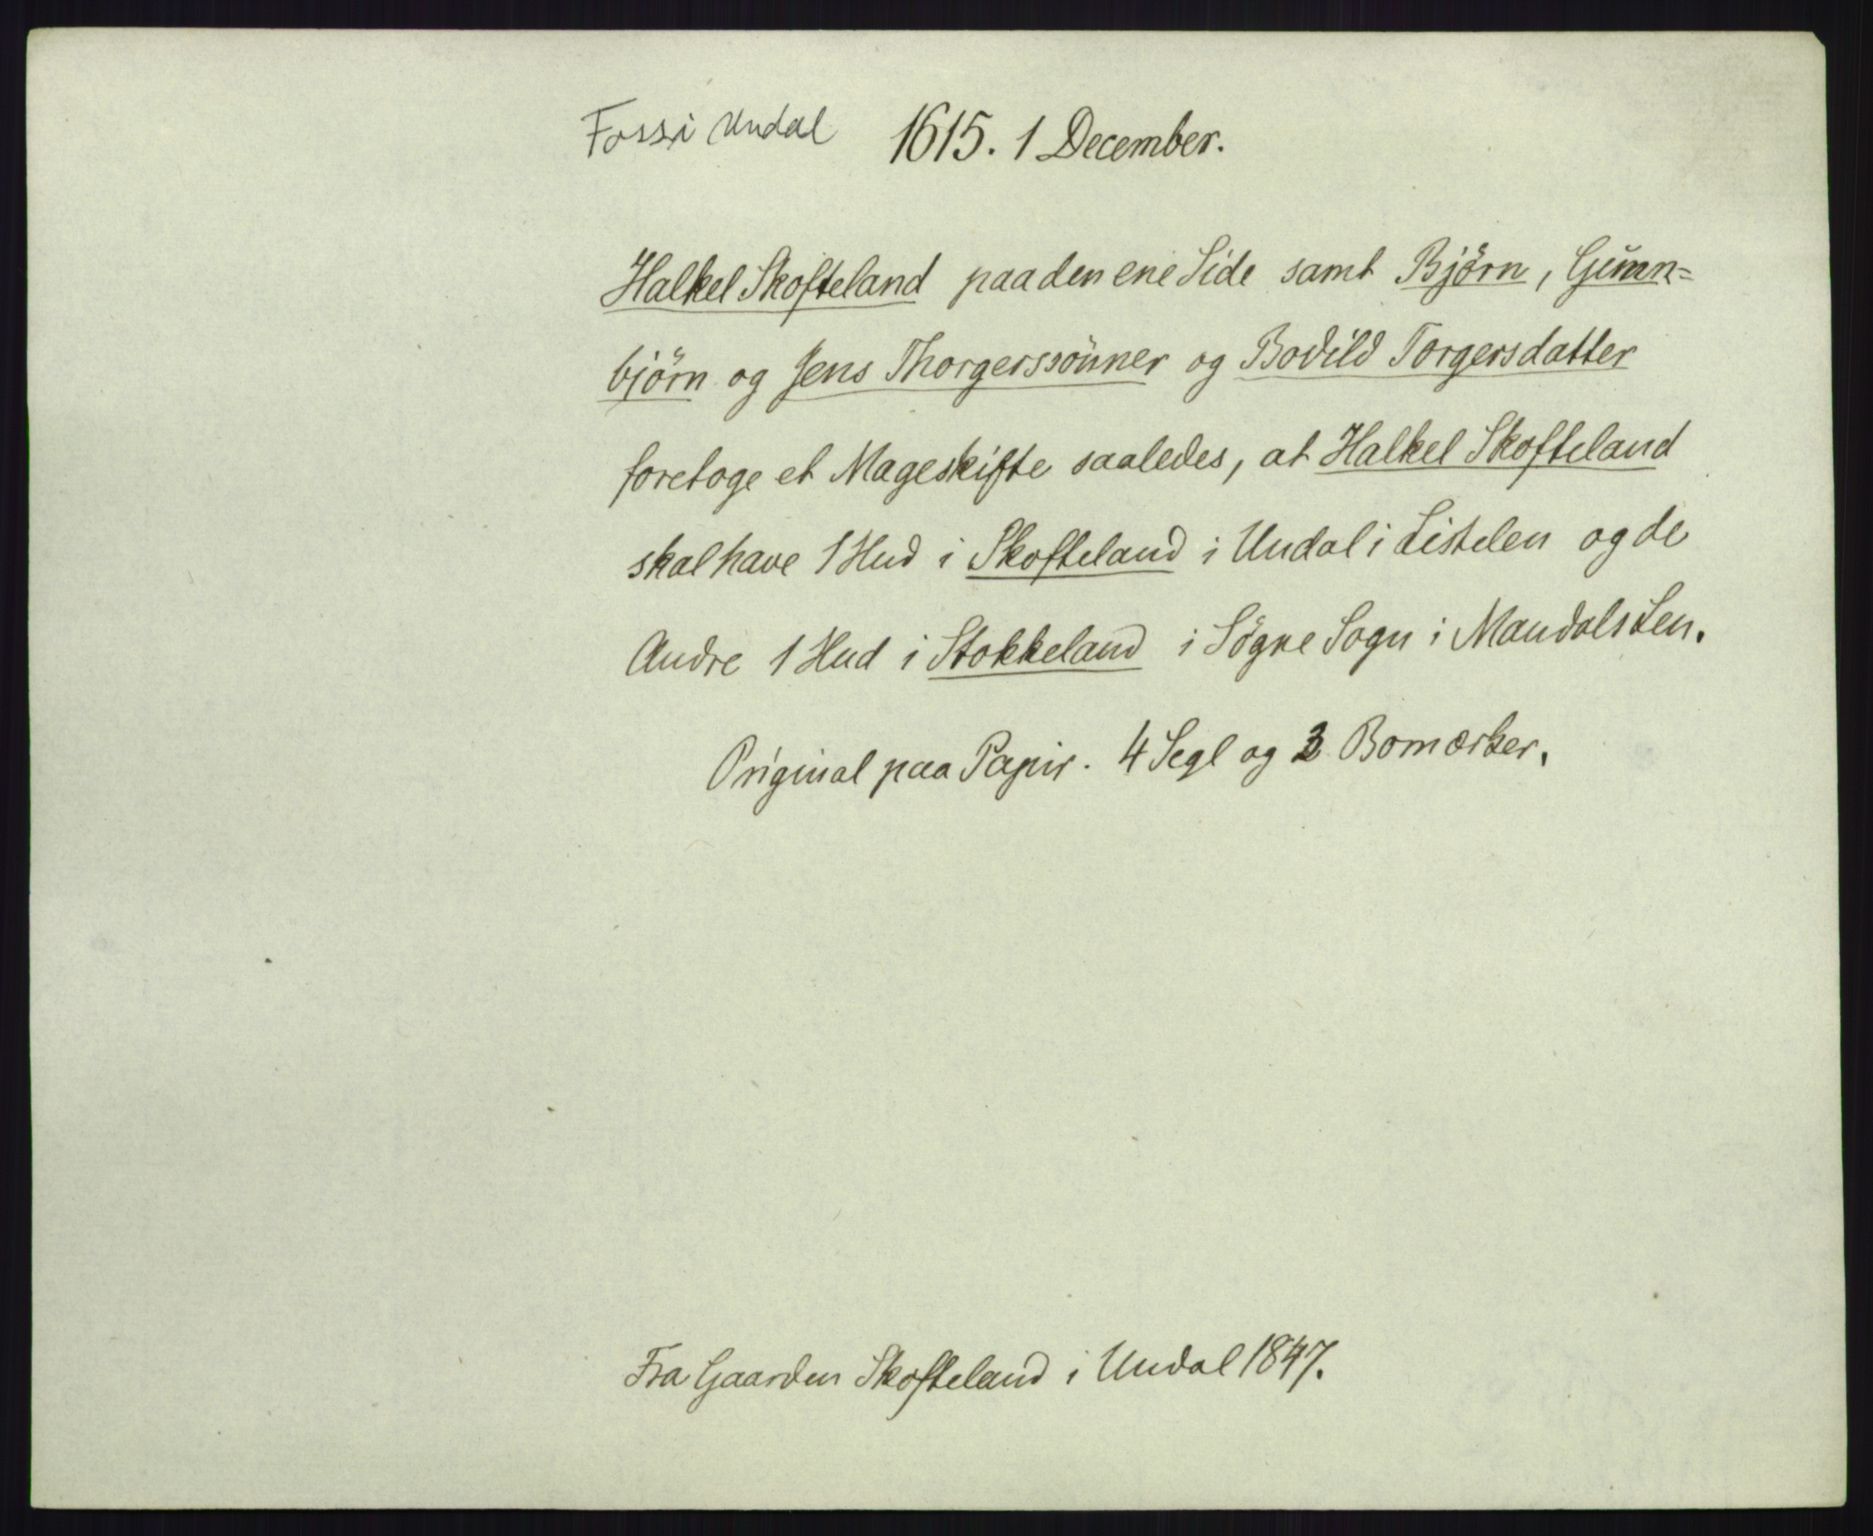 Foss i Undal 1615. 1 December.
Halkel Skofteland paa den ene Side samt Björn, Gunn=
björn og Jens Thorgerssönner og Bodild Torgersdatter
foretoge et Mageskifte saaledes, at Halkel Skofteland
skal have 1 Hud i Skofteland i Undal i Listelen og de
Andre 1 Hud i Stokkeland i Sögne Sogn i Mandals Len.
Original paa Papir. 4 Segl og 3 Bomærker.
Fra Gaarden Skofteland i Undal 1847.